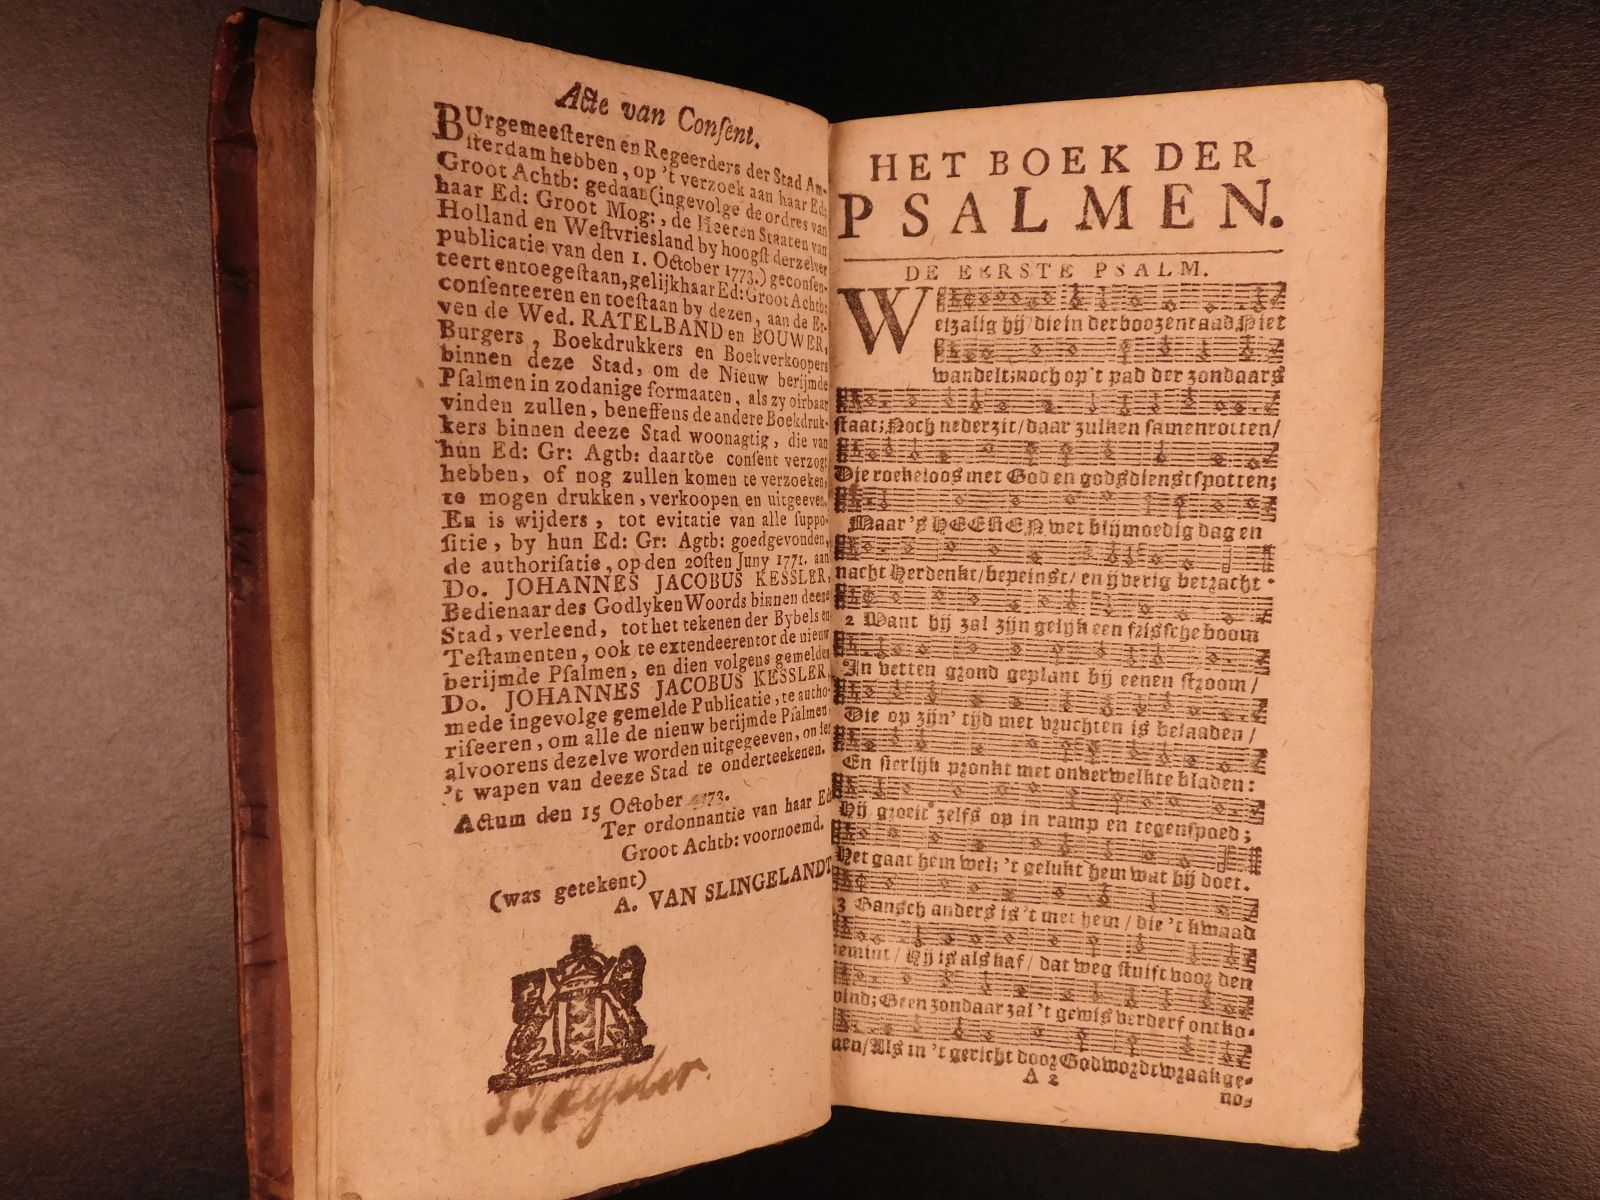 Acte van Conſent.
BUrgemeeſteren en Regeerders der Stad Am-
ſterdam hebben, op 't verzoek aan haar Ed:
Groot Achtb: gedaan (ingevolge de ordres van
haar Ed: Groot Mog:, de Heeren Staaten van
Holland en Weſtvriesland by hoogſt derzelver
publicatie van den 1. October 1773.) geconſen-
teert en toegeſtaan, gelijk haar Ed: Groot Achtb:
conſenteeren en toeſtaan by dezen, aan de Er-
ven de Wed. RATELBAND en BOUWER,
Burgers, Boekdrukkers en Boekverkoopers
binnen deze Stad, om de Nieuw berijmde
Pſalmen in zodanige formaaten, als zy oirbaar
vinden zullen, beneffens de andere Boekdruk-
kers binnen deeze Stad woonagtig, die van
hun Ed: Gr: Agtb: daartoe conſent verzogt
hebben, of nog zullen komen te verzoeken,
te mogen drukken, verkoopen en uitgeeven.
En is wijders, tot evitatie van alle ſuppo-
ſitie, by hun Ed: Gr: Agtb: goedgevonden,
de authoriſatie, op den 20ſten Juny 1771. aan
Do. JOHANNES JACOBUS KESSLER,
Bedienaar des Godlyken Woords binnen deeze
Stad, verleend, tot het tekenen der Bybels en
Teſtamenten, ook te extendeeren tot de nieuw
berijmde Pſalmen, en dien volgens gemelden
Do. JOHANNES JACOBUS KESSLER,
mede ingevolge gemelde Publicatie, te autho-
riſeeren, om alle de nieuw berijmde Pſalmen,
alvoorens dezelve worden uitgegeeven, onder
't wapen van deeze Stad te onderteekenen.
Actum den 15 October 1773.
Ter ordonnantie van haar Ed
Groot Achtb: voornoemd.
(was getekent)
A. VAN SLINGELANDT
HET BOEK DER
PSALMEN.
DE EERSTE PSALM.
Welzalig hij/ die in der boozen raad Niet
wandelt; noch op 't pad der zondaars
staat; Noch nederzit/ daar zulken samenrotten/
Die roekeloos met God en godsdienst spotten;
Maar 's HEEREN wet blijmoedig dag en
nacht Herdenkt/ bepeinst/ en ijverig betracht.
2 Want hij zal zijn gelijk een frissche boom
In vetten grond geplant bij eenen stroom/
Die op zijn' tijd met vruchten is belaaden/
En sierlijk pronkt met onverwelkte bladen:
Hij groeit zelfs op in ramp en tegenspoed;
Het gaat hem wel; 't gelukt hem wat hij doet.
3 Gansch anders is 't met hem/ die 't kwaad
bemint/ Hij is als kaf/ dat weg stuift voor den
wind; Geen zondaar zal 't gewis verderf ontko-
men/ Als in 't gericht door God wordt wraak ge-
A 2
no-